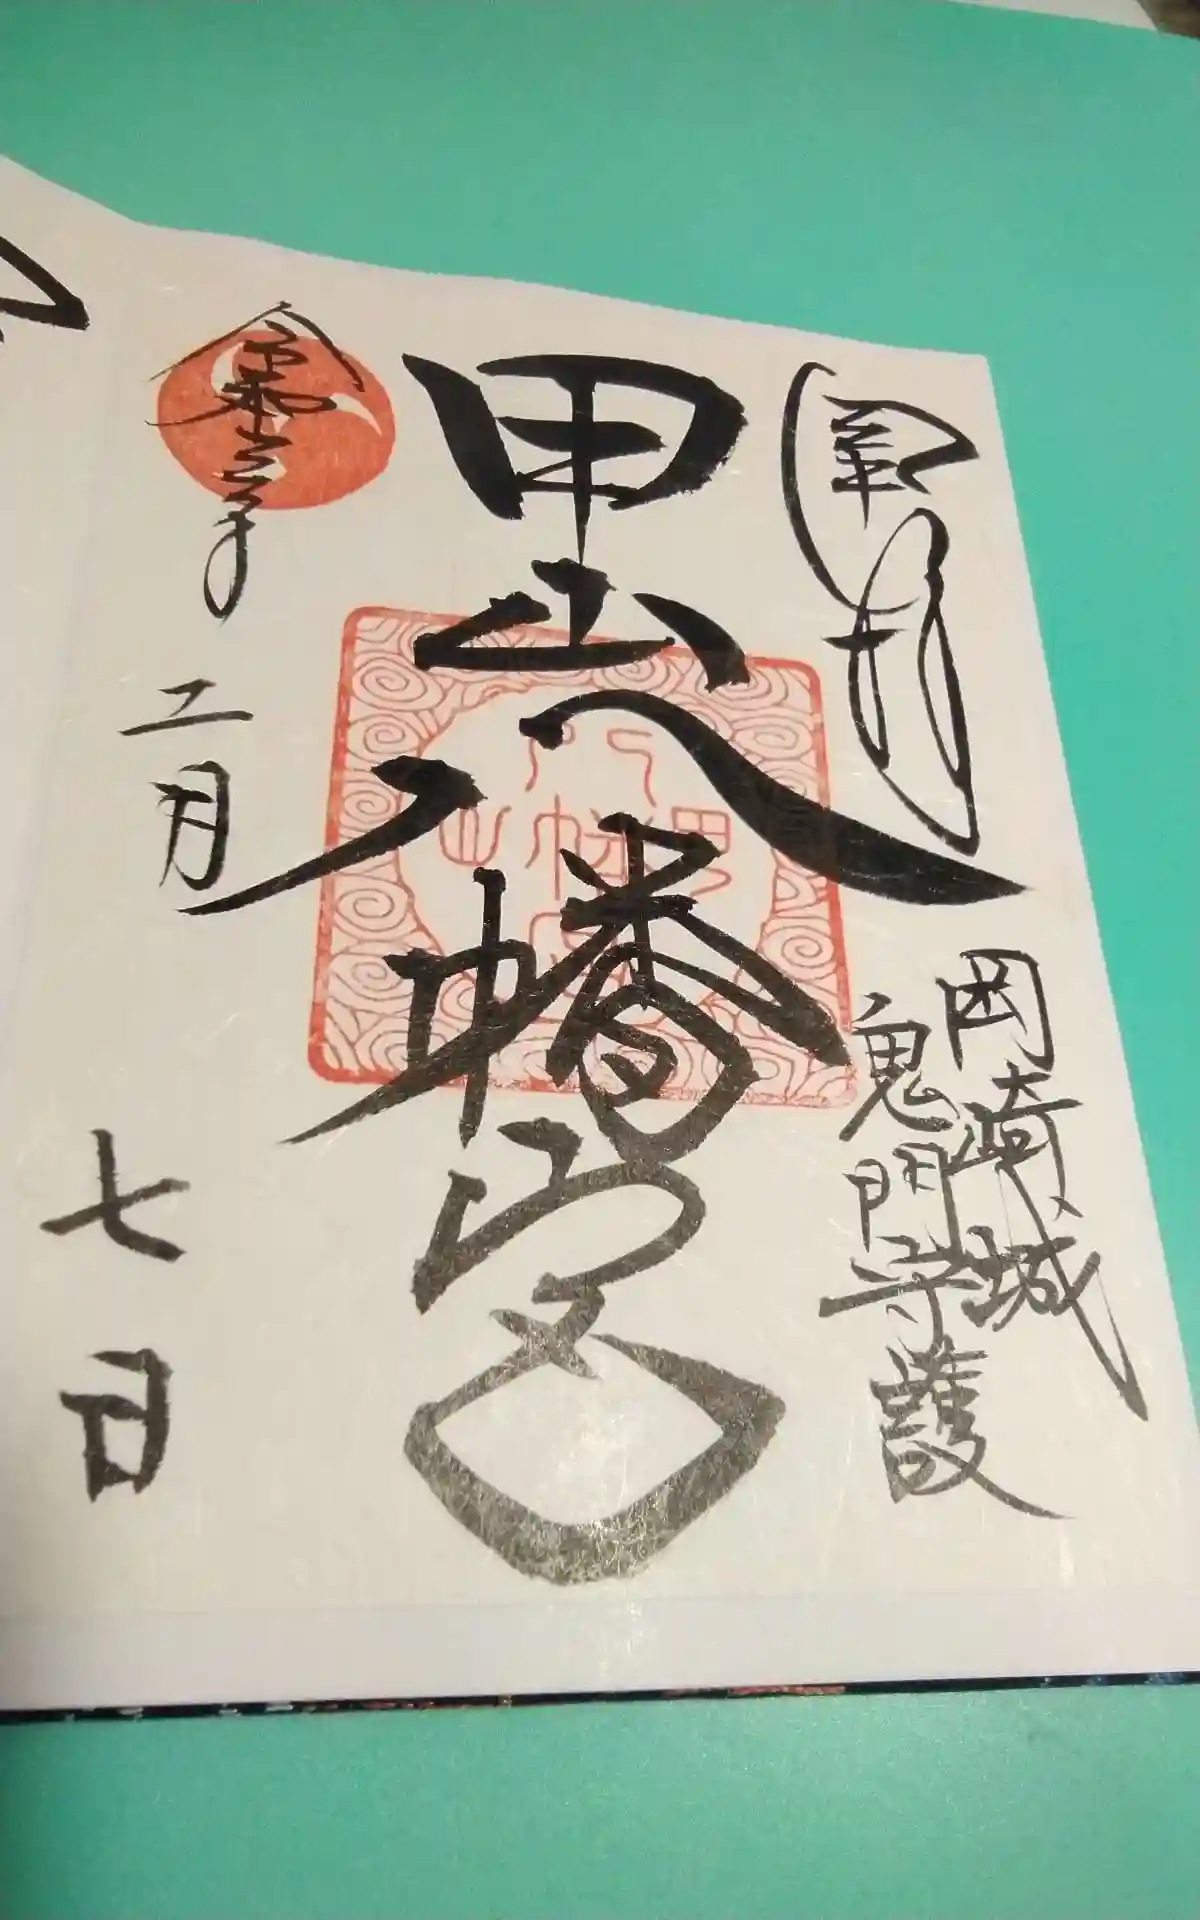 奉拝
岡崎城
鬼門守護
甲山八幡宮
令和三年
二月
七日